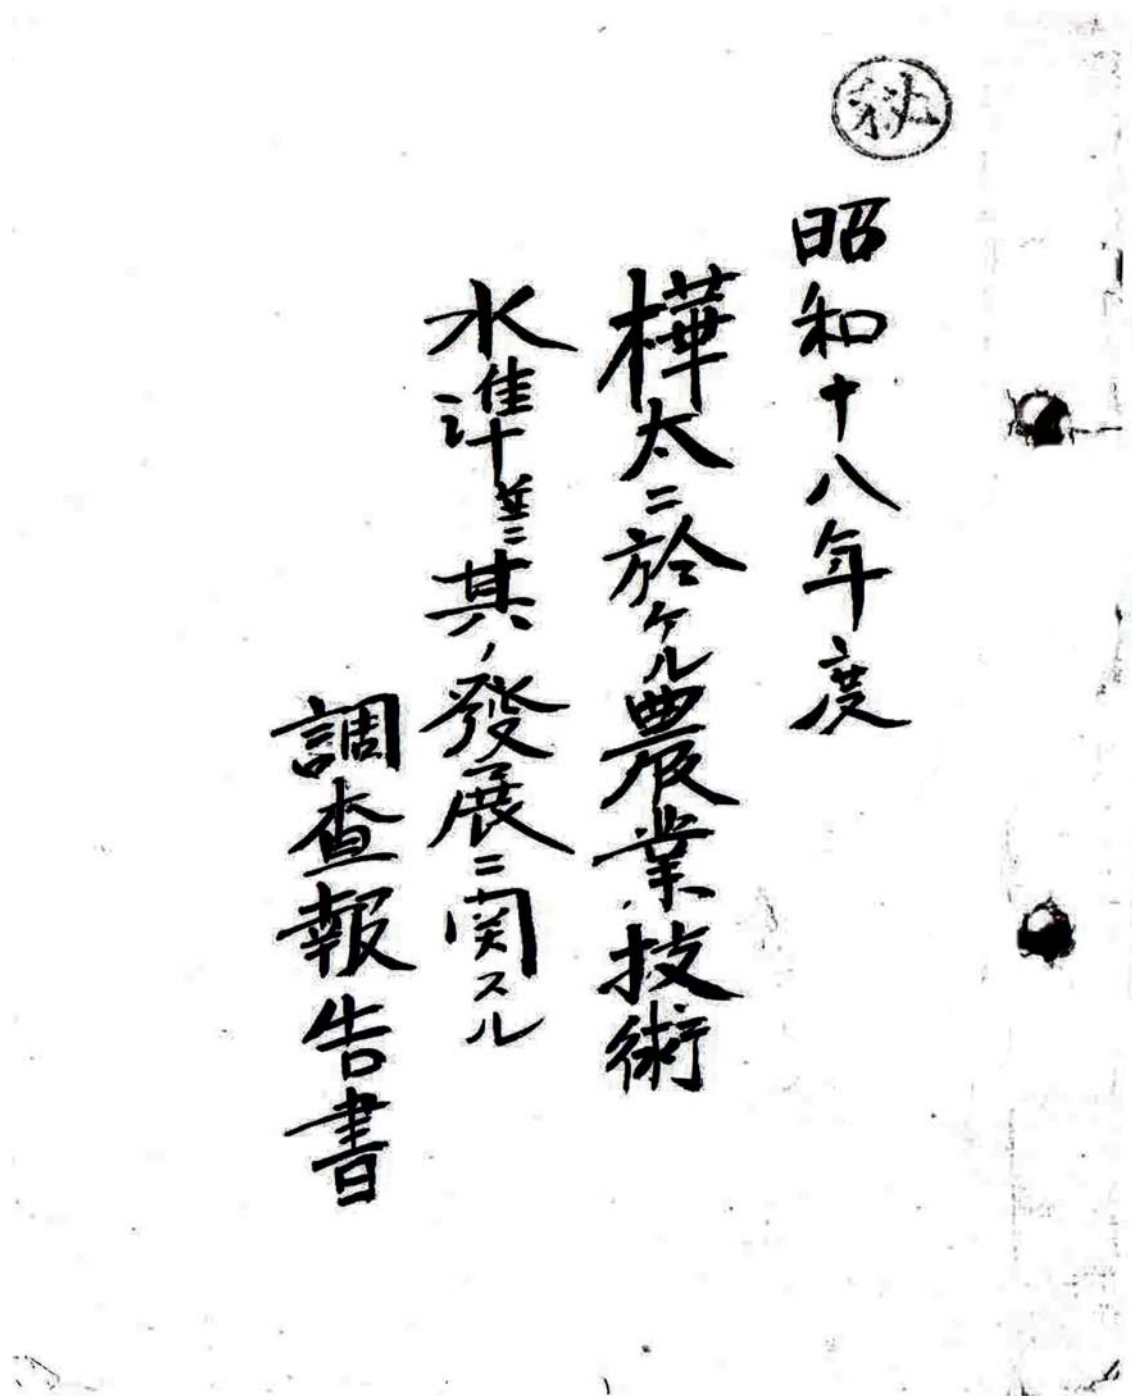 秘
昭和十八年度
樺太ニ於ケル農業技術
水準並ニ其ノ發展ニ関スル
調査報告書